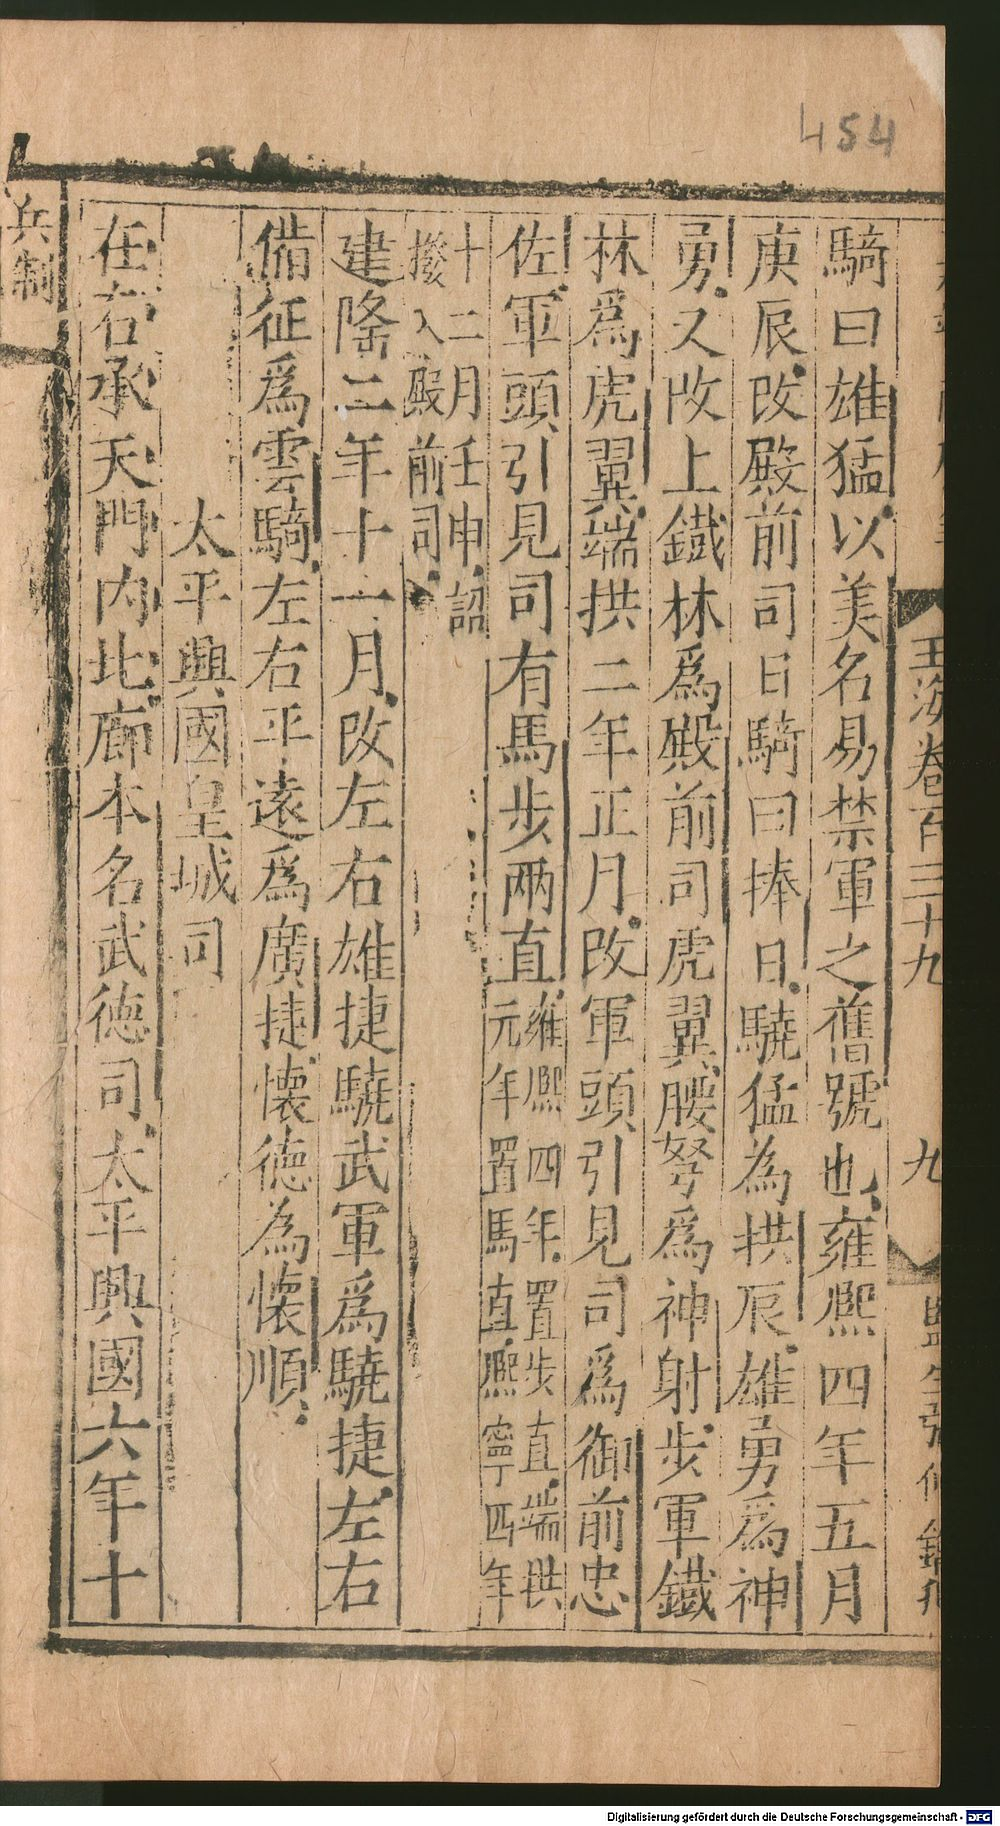 454
玉海卷百三十九
九
騎曰雄猛以美名易禁軍之舊號也雍熙四年五月
庚辰改殿前司日騎曰捧日驍猛為拱辰雄勇爲神
勇又改上鐵林爲殿前司虎翼腰弩爲神射步軍鐵
林爲虎翼端拱二年正月改軍頭引見司爲御前忠
佐軍頭引見司有馬步兩直雍熙四年置步直端拱
元年置馬直熙寧四年
十二月壬申詔
撥入殿前司
建隆二年十一月改左右雄捷驍武軍爲驍捷左右
備征爲雲騎左右平遠爲廣捷懐德為懐順
太平興國皇城司
在右承天門内北廊本名武德司太平興國六年十
兵制
Digitalisierung gefördert durch die Deutsche Forschungsgemeinschaft - DFG